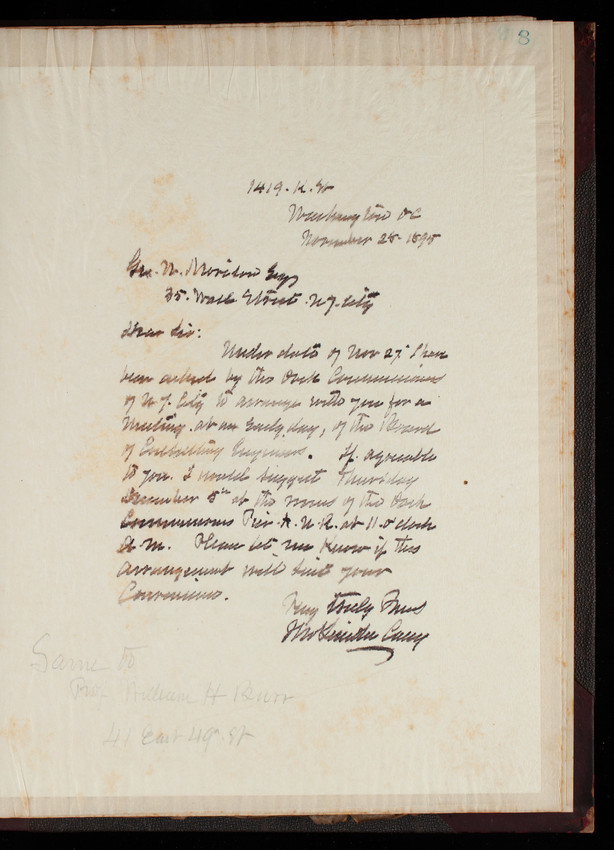 8
1419. K. St
Washington DC
November 28 1895
Geo. S. Morison Esq
35. Wall Street N.Y. City
Dear Sir:
Under date of Nov 27" I have
been asked by the Dock Commissioners
of N.Y. City to arrange with you for a
Meeting, at an early day, of the Board
of Consulting Engineers. If agreeable
to you. I would suggest Thursday
December 5th at the rooms of the Dock
Commissioners Pier A. N. R. at 11. o'clock
A. M. Please let me know if this
arrangement will suit your
Convenience.
Very truly Yours
Thos Lincoln Casey
Same to
Prof. William H Burr
41 East 49th St